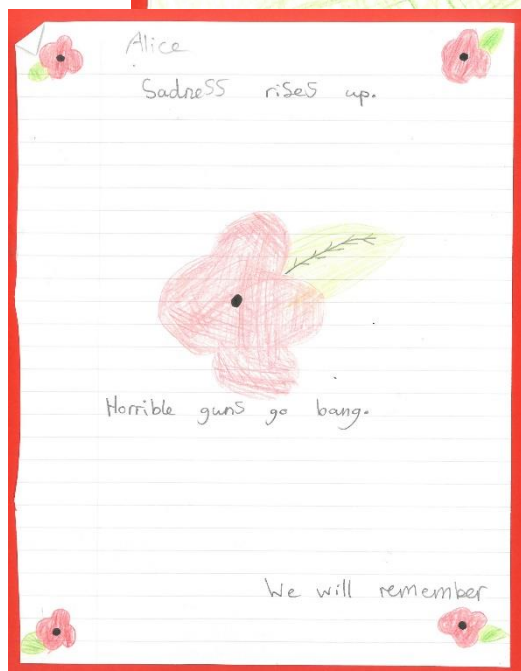 Alice
Sadness rises up.
Horrible guns go bang.
We will remember